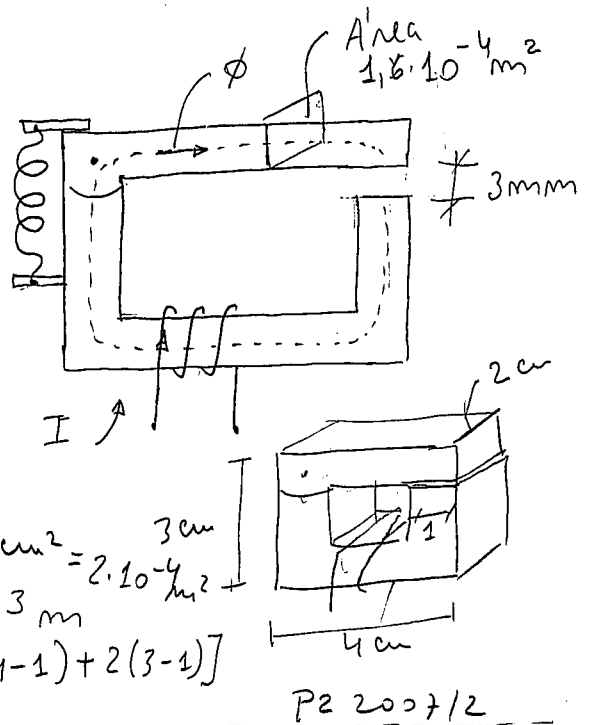 Área
1,6·10⁻⁴ m²
ϕ
3mm
I
2 cm
3 cm
1
4 cm
cm² = 2·10⁻⁴ m²
3 m
-1) + 2(3-1)]
P2 2007/2